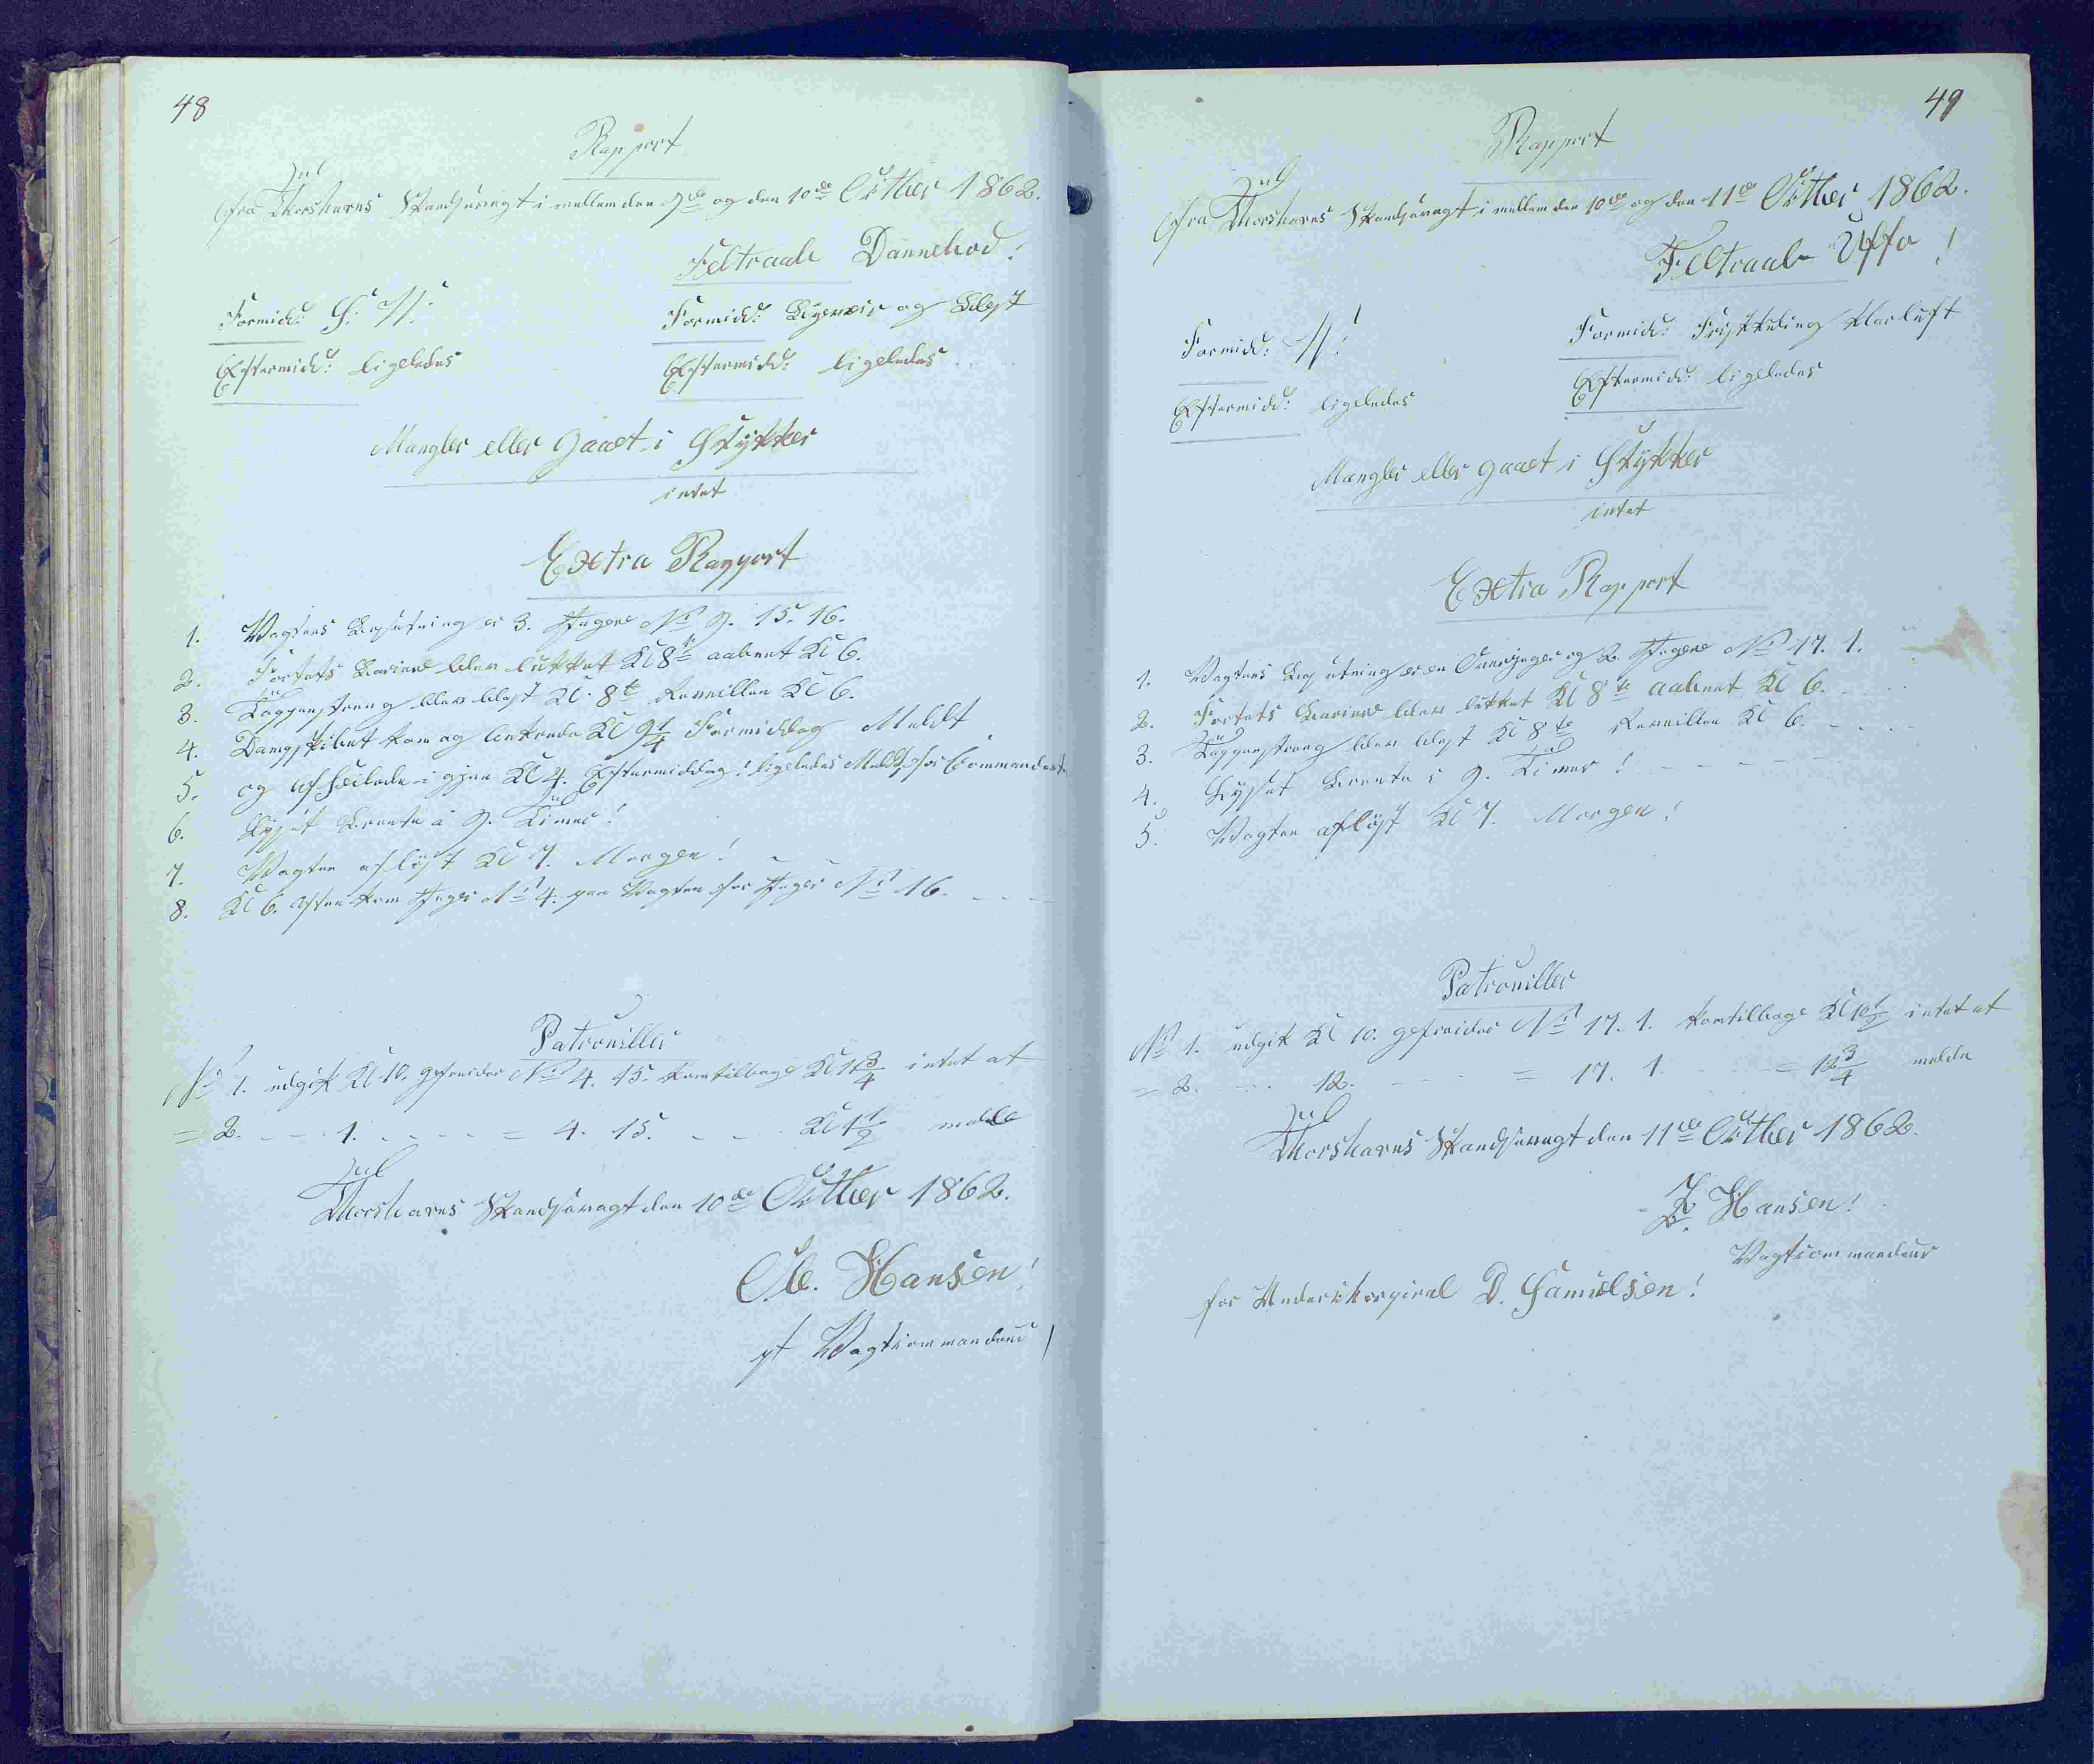 48
Rapport
fra Thorshavns Skandsevagt i mellem den 9de og den 10de Octber 1862.
Feltraab Dannebod!
Formidd: S: V:
Formidd: Bygeveir og Blæst
Eftermidd: ligeledes
Eftermidd: ligeledes
Mangler eller gaaet i Stykker
intet
Extra Rapport
1. Vagtens Besætning er 3. Jægere No 9. 15. 16.
2. Fortets Barriere blev lukket Kl 8te aabnet Kl 6.
3. Tappenstreng blev blæst Kl. 8te Reveillen Kl 6.
4. Dampskibet kom og ankrede Kl 9 1/4 Formiddag Meldt
5. og afseilede igjen Kl 4. Eftermiddag! ligeledes Meldt for Commandanten
6. Lyset brente i 9. Timer!
7. Vagten aflöst Kl 7. Morgen!
8. Kl 6. Aften kom Jæger No 4. paa Vagten for Jæger No 16.
Patrouiller
No 1. udgik Kl 10. gefreider No 4. 15. kom tilbage Kl 10 3/4 intet at
= 2. 1. = 4. 15. Kl 1 1/2 melde
Thorshavns Skandsevagt den 10de Octber 1862.
Ole. Hansen!
pt Vagtcommandeur
49
Rapport
fra Thorshavns Skandsevagt i mellem den 10de og den 11te Octber 1862.
Feltraab Uffo!
Formidd: V!
Formidd: Friskkuling Klarluft
Eftermidd: ligeledes
Eftermidd: ligeledes
Mangler eller gaaet i Stykker
intet
Extra Rapport
1. Vagtens Besætning er en Overjæger og 2. Jægere No 17. 1.
2. Fortets Barriere blev lukket Kl 8te aabnet Kl 6.
3. Tappenstreng blev blæst Kl 8te Reveillen Kl 6.
4. Lyset brente i 9. Timer!
5. Vagten aflöst Kl 7. Morgen!
Patrouiller
No 1. udgik Kl 10. gefreider No 17. 1. kom tilbage Kl 10 1/2 intet at
= 2. 12. = 17. 1. = 12 3/4 melde
Thorshavns Skandsevagt den 11te Octber 1862.
Hansen!
Vagtcommandeur
for Underkorporal D. Samuelsen!